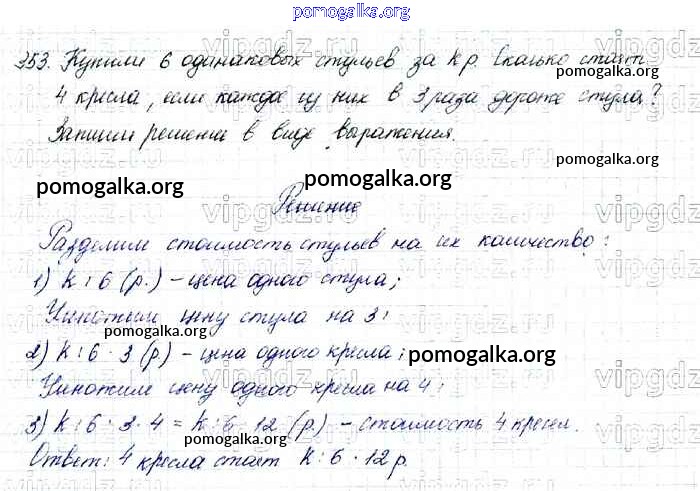 pomogalka.org
353. Купили 6 одинаковых стульев за k р. Сколько стоят
pomogalka.org
4 кресла, если каждое из них в 3 раза дороже стула?
Запиши решение в виде выражения.
pomogalka.org
pomogalka.org
pomogalka.org
Решение
Разделим стоимость стульев на их количество:
1) k : 6 (р.) – цена одного стула;
Умножим цену стула на 3:
pomogalka.org
2) k : 6 · 3 (р.) – цена одного кресла;
pomogalka.org
Умножим цену одного кресла на 4:
3) k : 6 · 3 · 4 = k : 6 · 12 (р.) – стоимость 4 кресел.
pomogalka.org
Ответ: 4 кресла стоят k : 6 · 12 р.